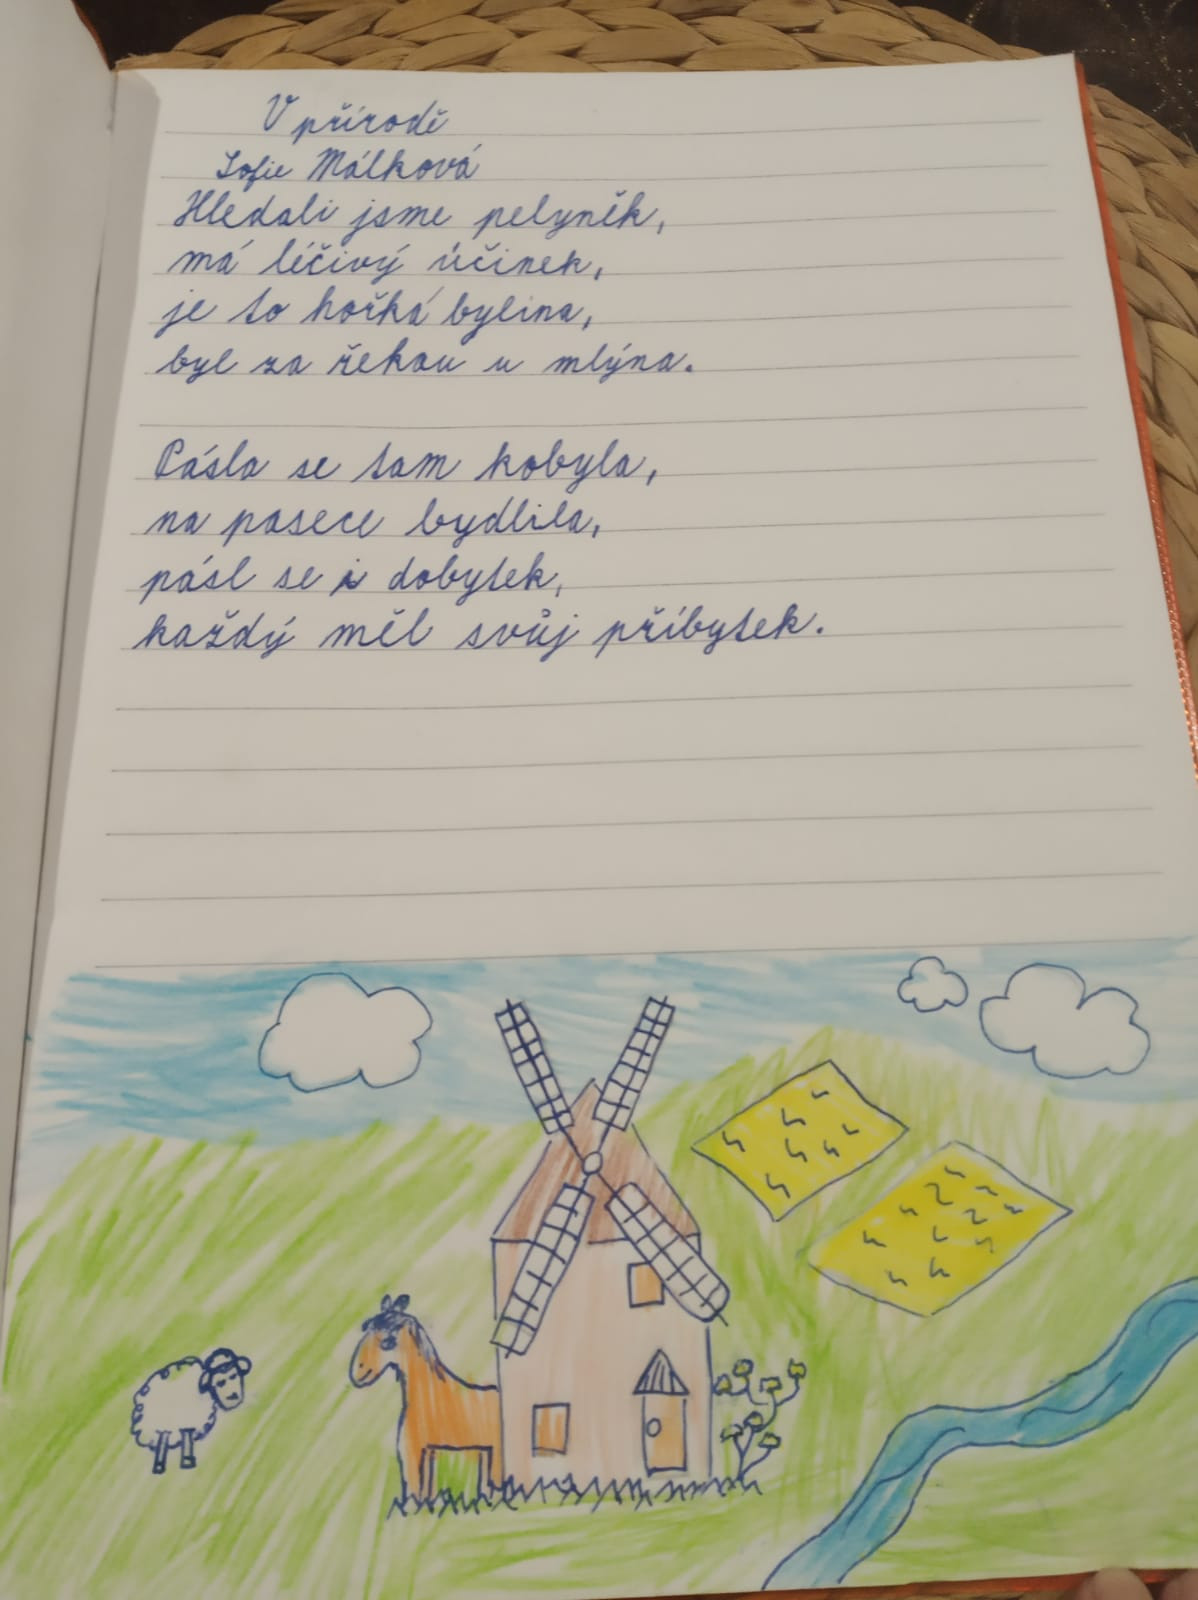 V přírodě
Sofie Málková
Hledali jsme pelyněk,
má léčivý účinek,
je to hořká bylina,
byl za řekou u mlýna.
Pásla se tam kobyla,
na pasece bydlila,
pásl se i dobytek,
každý měl svůj příbytek.